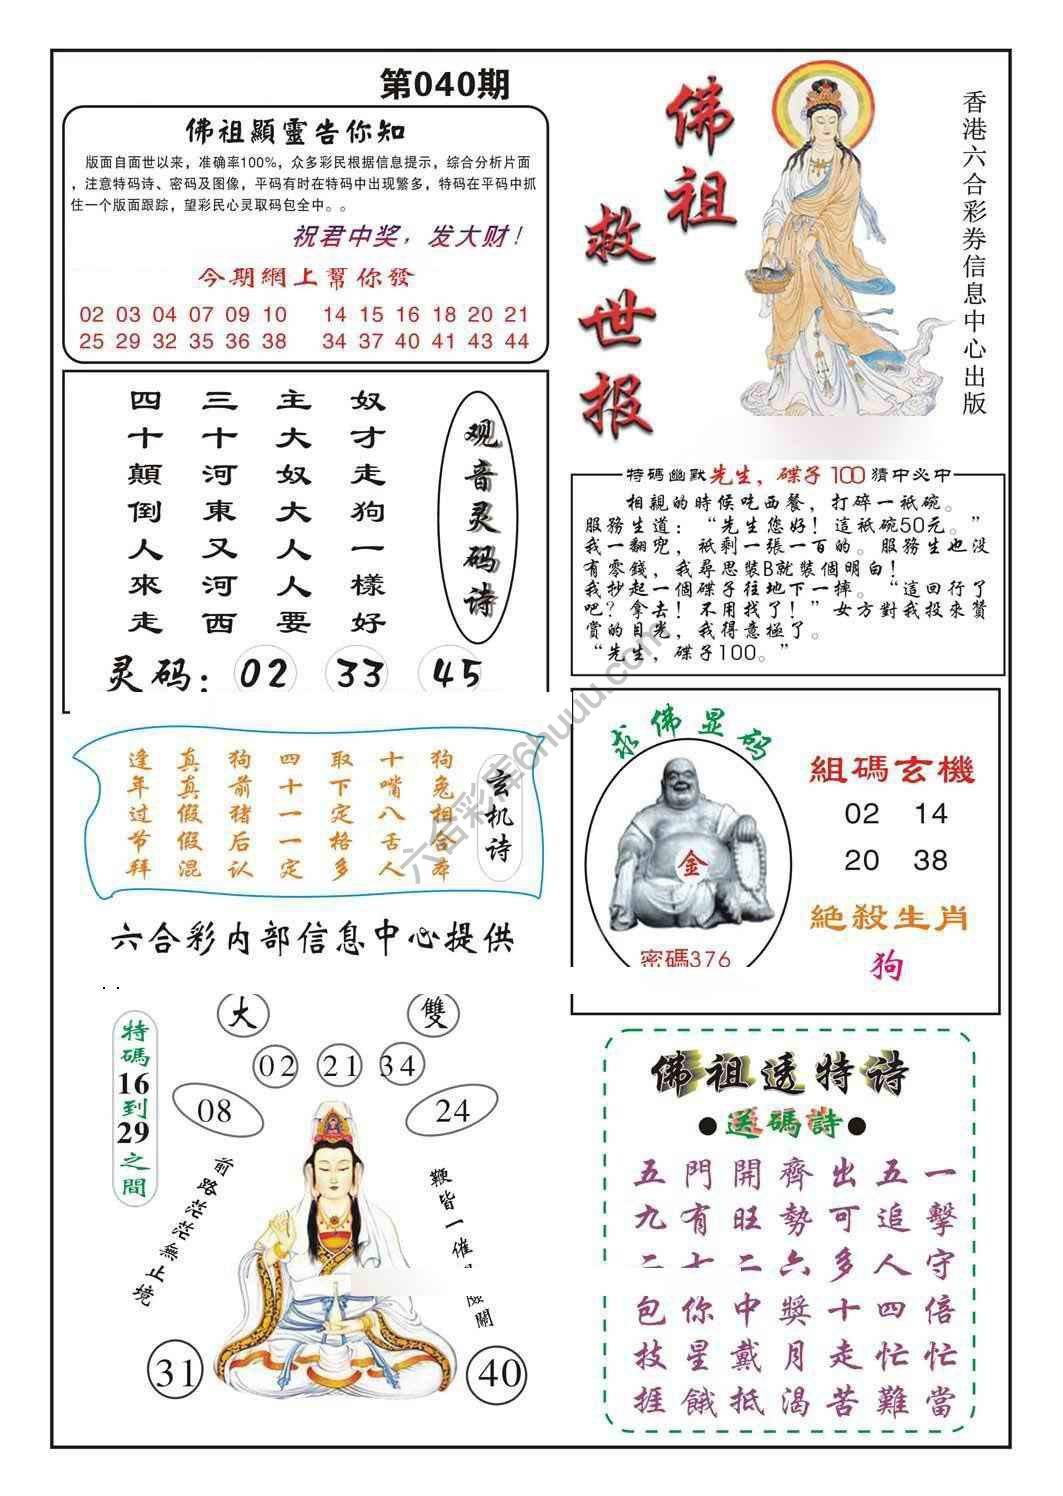 第040期
佛祖顯靈告你知
版面自面世以来，准确率100%，众多彩民根据信息提示，综合分析片面
，注意特码诗、密码及图像，平码有时在特码中出现繁多，特码在平码中抓
住一个版面跟踪，望彩民心灵取码包全中。。
祝君中奖，发大财！
今期網上幫你發
02 03 04 07 09 10 14 15 16 18 20 21
25 29 32 35 36 38 34 37 40 41 43 44
佛祖
救世报
香港六合彩券信息中心出版
观音灵码诗
奴才走狗一樣好
主大奴大人人要
三十河東又河西
四十顛倒人來走
灵码：02 33 45
特碼幽默先生，碟子100猜中必中
相親的時候吃西餐，打碎一祇碗。
服務生道：“先生您好！這祇碗50元。”
我一翻兜，祇剩一張一百的。服務生也没
有零錢，我尋思裝B就裝個明白！
我抄起一個碟子往地下一摔。“這回行了
吧？拿去！不用找了！”女方對我投來贊
賞的目光，我得意極了。
“先生，碟子100。”
玄机诗
逢真狗四取十狗
年真前十下嘴兔
过假猪一定八相
节假后一格舌合
拜混认定多人本
六合彩内部信息中心提供
求佛显码
金
密碼376
組碼玄機
02 14
20 38
絕殺生肖
狗
特碼16到29之間
大 雙
02 21 34
08 24
前路茫茫無止境
鞭皆一催
關
31 40
佛祖透特诗
●送碼詩●
五門開齊出五一
九有旺勢可追擊
二十二六多人守
包你中獎十四倍
技星戴月走忙忙
捱餓抵渴苦難當
六合彩库6huuu.com